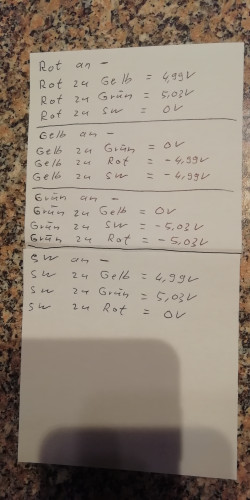 Rot an -
Rot zu Gelb = 4,99V
Rot zu Grün = 5,03V
Rot zu SW = 0V
Gelb an -
Gelb zu Grün = 0V
Gelb zu Rot = -4,99V
Gelb zu SW = -4,99V
Grün an -
Grün zu Gelb = 0V
Grün zu SW = -5,03V
Grün zu Rot = -5,03V
SW an -
SW zu Gelb = 4,99V
SW zu Grün = 5,03V
SW zu Rot = 0V